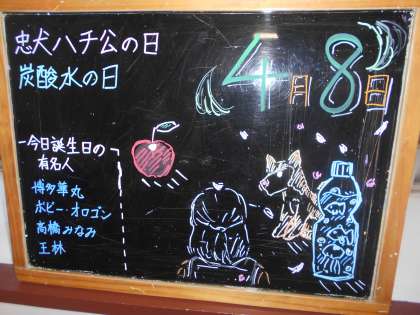 忠犬ハチ公の日
炭酸水の日
4月8日
今日誕生日の
有名人
博多華丸
ボビー・オロゴン
高橋みなみ
王林